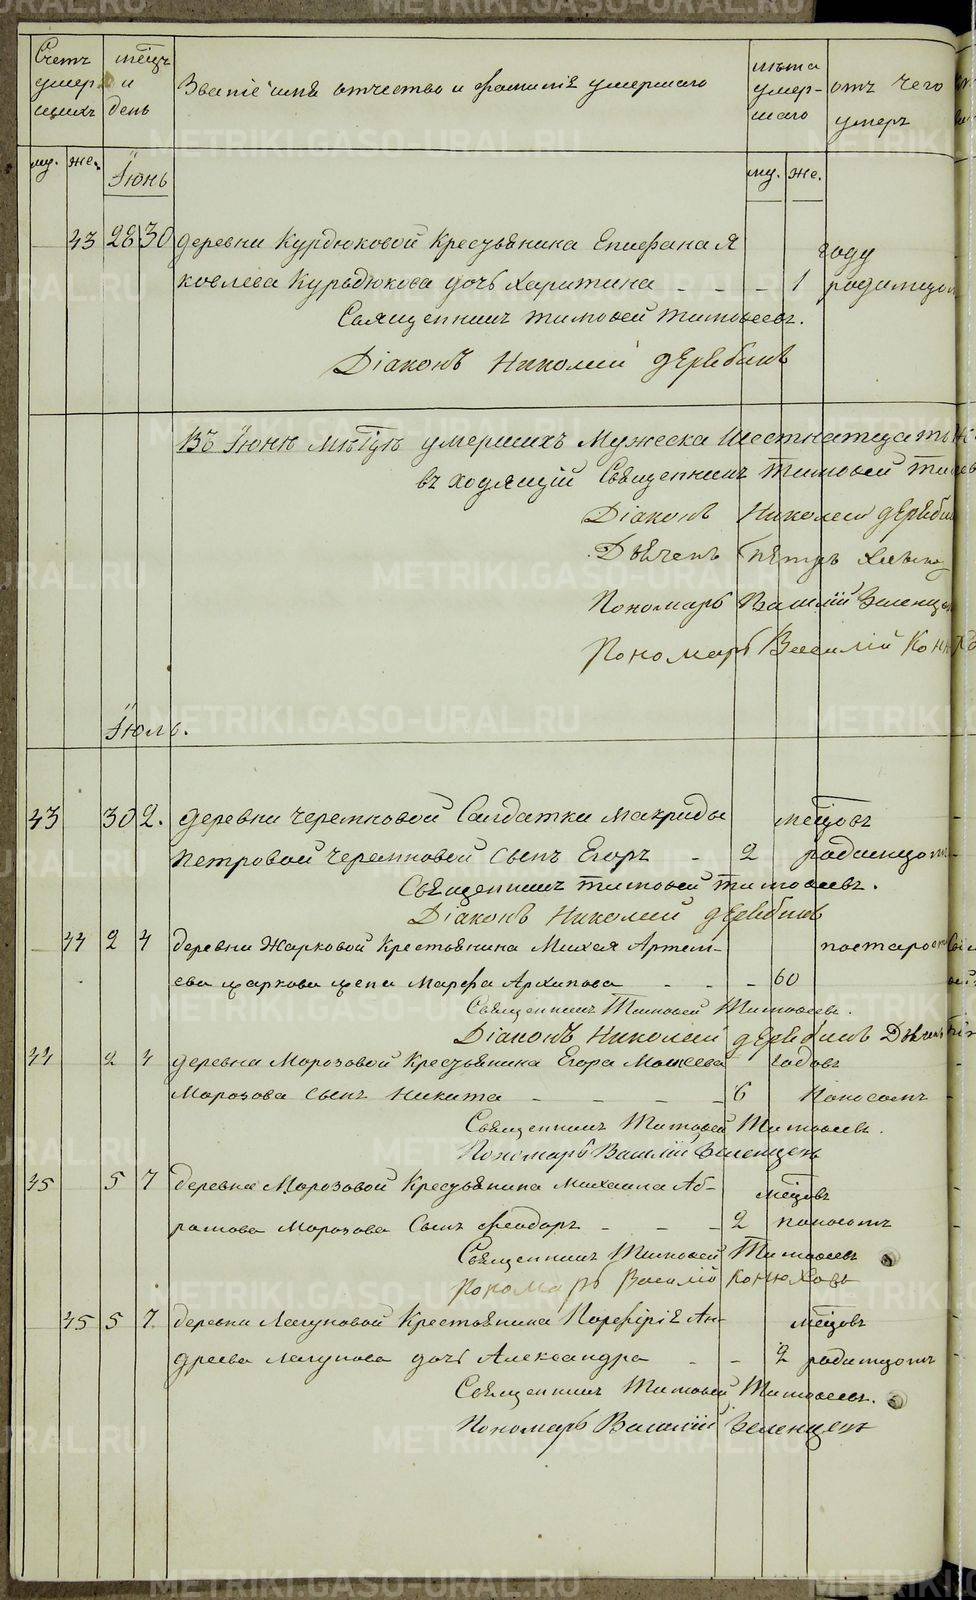 Счетъ умерщихъ
мѣсяцъ и день
Званіе имя отчество и фамилія умершаго
лѣта умершаго
отъ чего умеръ
му. же.
Іюнь
му. же.
43 28 30 деревни Курдюковой Крестьянина Епифана Я
ковлева Курьдюкова дочь Харитина - - - 1
году
родимцом
Священникъ Тимофей Тимофеевъ.
Діаконъ Николай Дерябинъ
Въ Іюнѣ мѣсяцѣ умершихъ Мужеска Шестнатцать
въ ходящій Священникъ Тимофей
Діаконъ Николай Деряби
Дьячекъ Петръ
Пономарь Василій Зеленцо
Пономарь Василій Кон
Іюль.
43 30 2. деревни Черемховой Салдатки Макриды мѣсцовъ
Петровой Черемховой Сынъ Егоръ - 2 родимцомъ
Священникъ Тимофей Тимофеевъ.
Діаконъ Николай Дерябинъ
44 2 4 деревни Жарковой Крестьянина Михея Артем-
ева Жаркова жена Марфа Архипова - - - 60
постарости
Священникъ Тимофей Тимофеевъ.
Діаконъ Николай Дерябинъ Дьячекъ
44 2 4 деревни Морозовой Крестьянина Егора Моисеева годовъ
Морозова Сынъ Никита - - - - 6 Поносомъ
Священникъ Тимофей Тимофеевъ.
Пономарь Василій Зеленцовъ
45 5 7 деревни Морозовой Крестьянина Михаила Аб- мѣсцовъ
рамова Морозова Сынъ Феодоръ - - - 2 поносомъ
Священникъ Тимофей Тимофеевъ
Пономарь Василій Конюховъ
45 5 7. деревни Лагуновой Крестьянина Порфирія Ан- мѣсцовъ
дреева Лагунова дочь Александра - - 2 родимцомъ
Священникъ Тимофей Тимофеевъ.
Пономарь Василій Зеленцовъ
METRIKI.GASO-URAL.RU